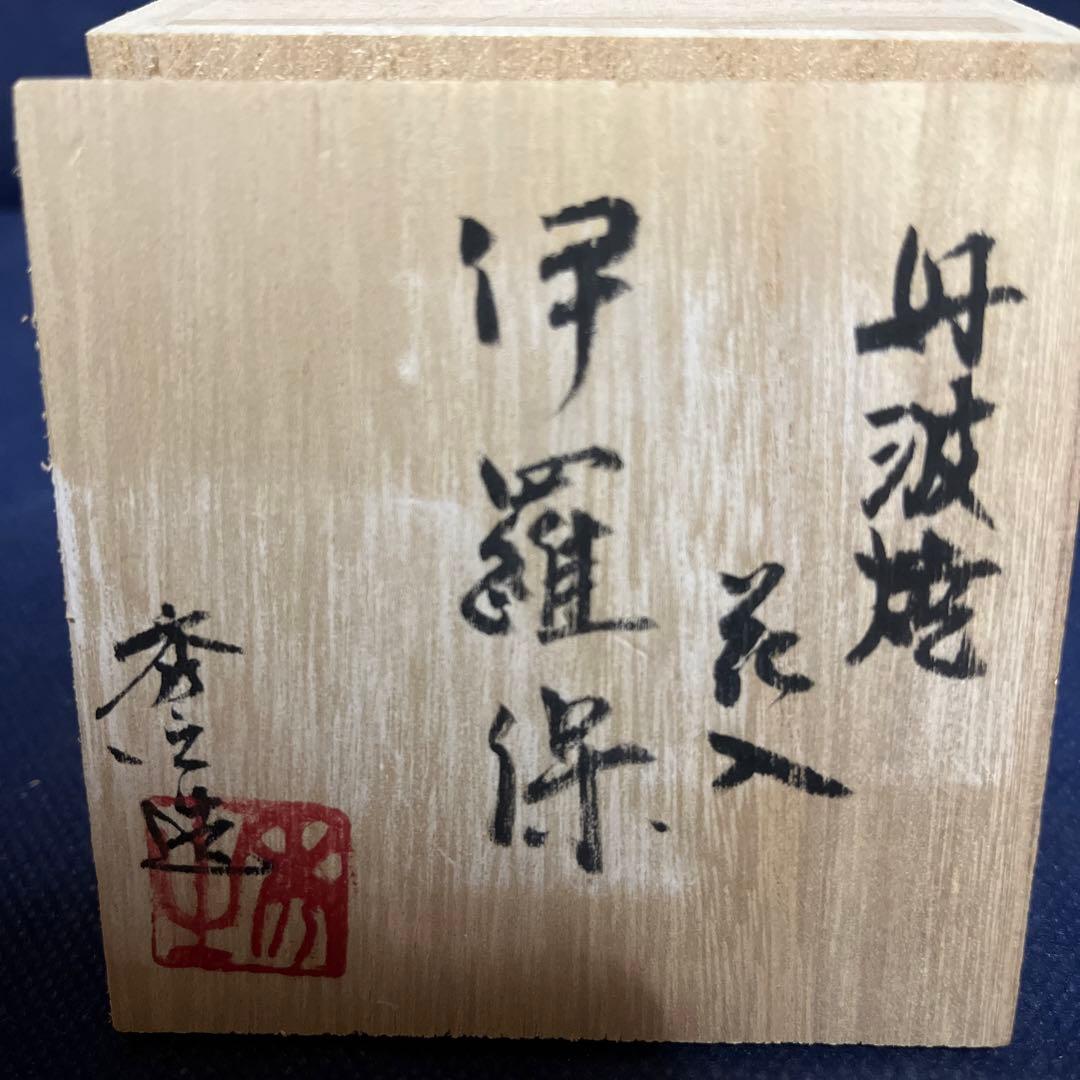 丹波焼
花入
伊羅保
秀之造
秀之